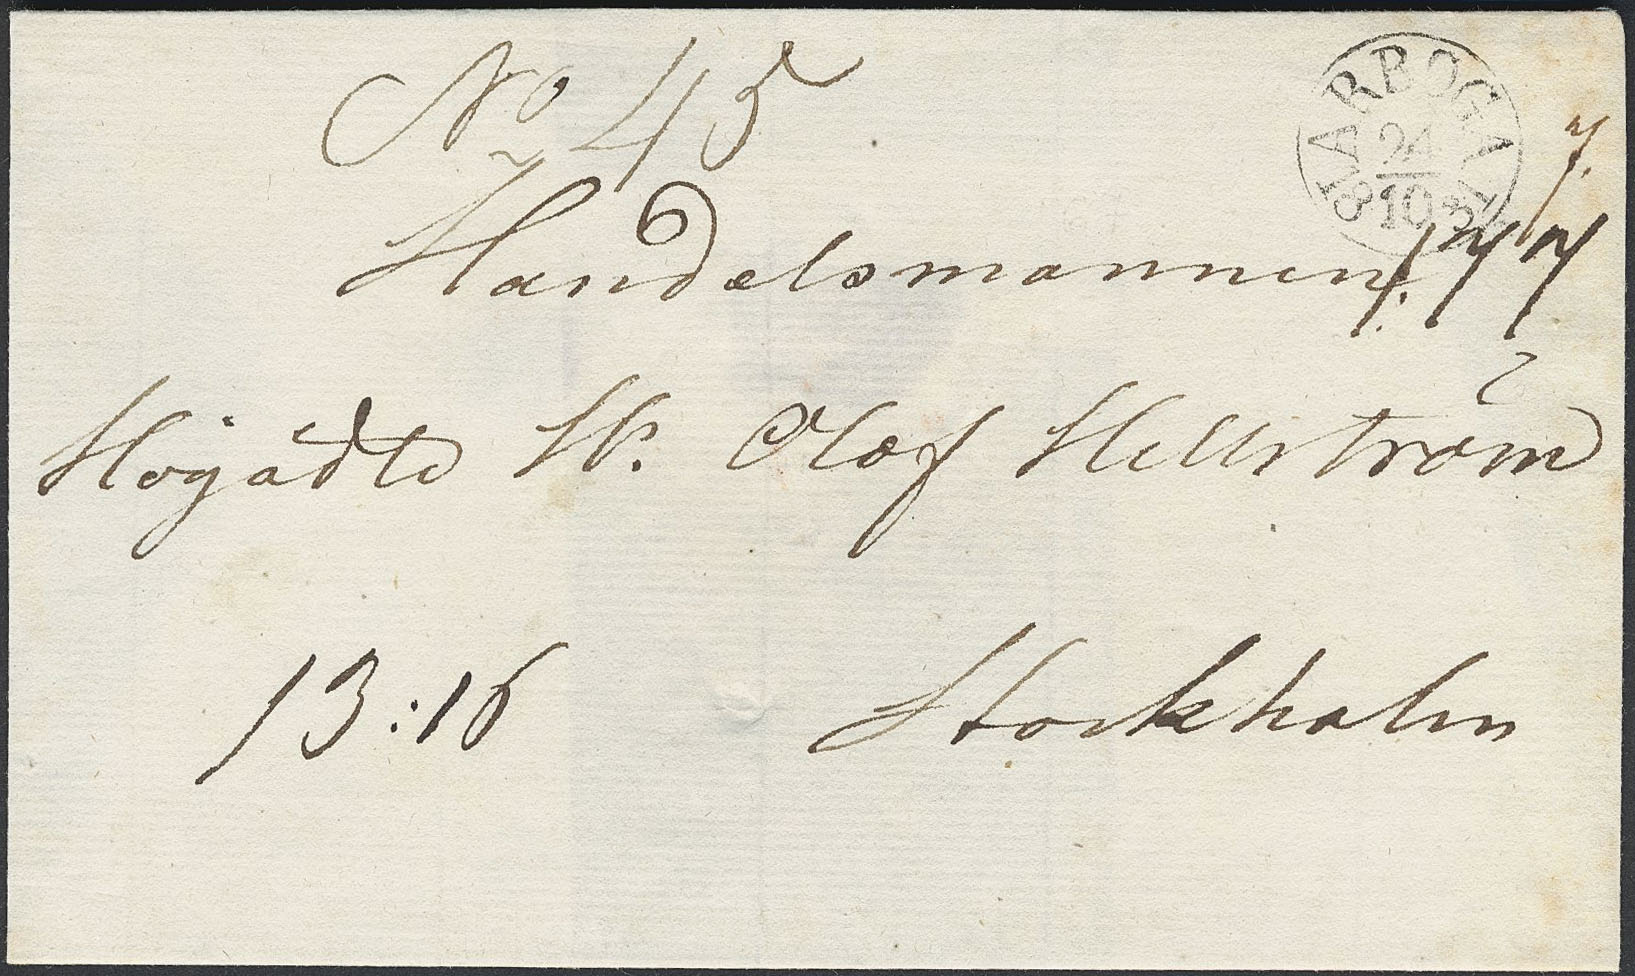 No 45
ARBOGA
24
10
Handelsmannen
Högädle H. Olof Hellström
13:16
Stockholm